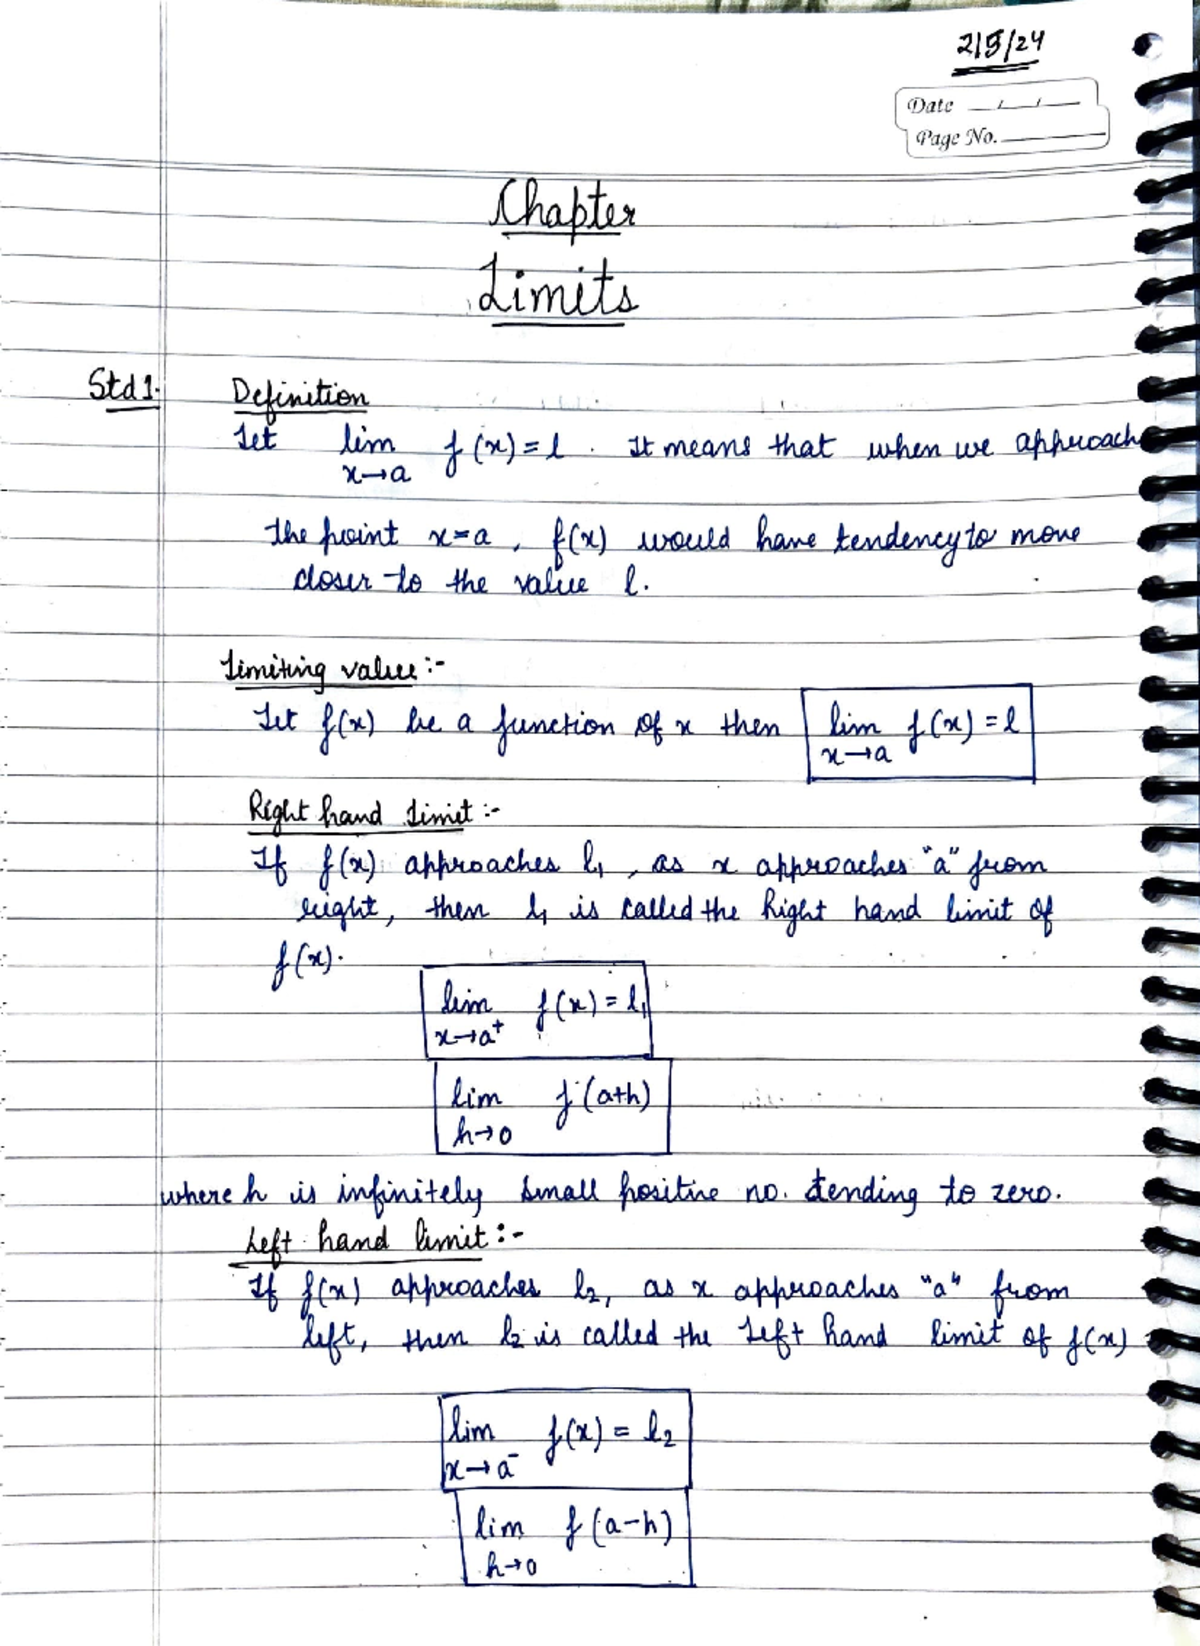 2/5/24
Date __/__/__
Page No. ______
Chapter
Limits
Std 1.
Definition
Let lim f(x) = l . It means that when we approach
x→a
the point x=a , f(x) would have tendency to move
closer to the value l.
Limiting value :-
Let f(x) be a function of x then lim f(x) = l
x→a
Right hand limit :-
If f(x) approaches l₁ , as x approaches "a" from
right, then l₁ is called the Right hand limit of
f(x).
lim f(x) = l₁
x→a⁺
lim f(a+h)
h→0
where h is infinitely small positive no. tending to zero.
Left hand limit :-
If f(x) approaches l₂, as x approaches "a" from
left, then l₂ is called the Left hand limit of f(x)
lim f(x) = l₂
x→a⁻
lim f(a-h)
h→0